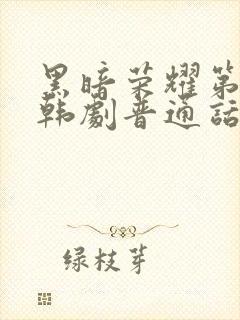 黑暗荣耀第
韩剧普通话
绿枝芽